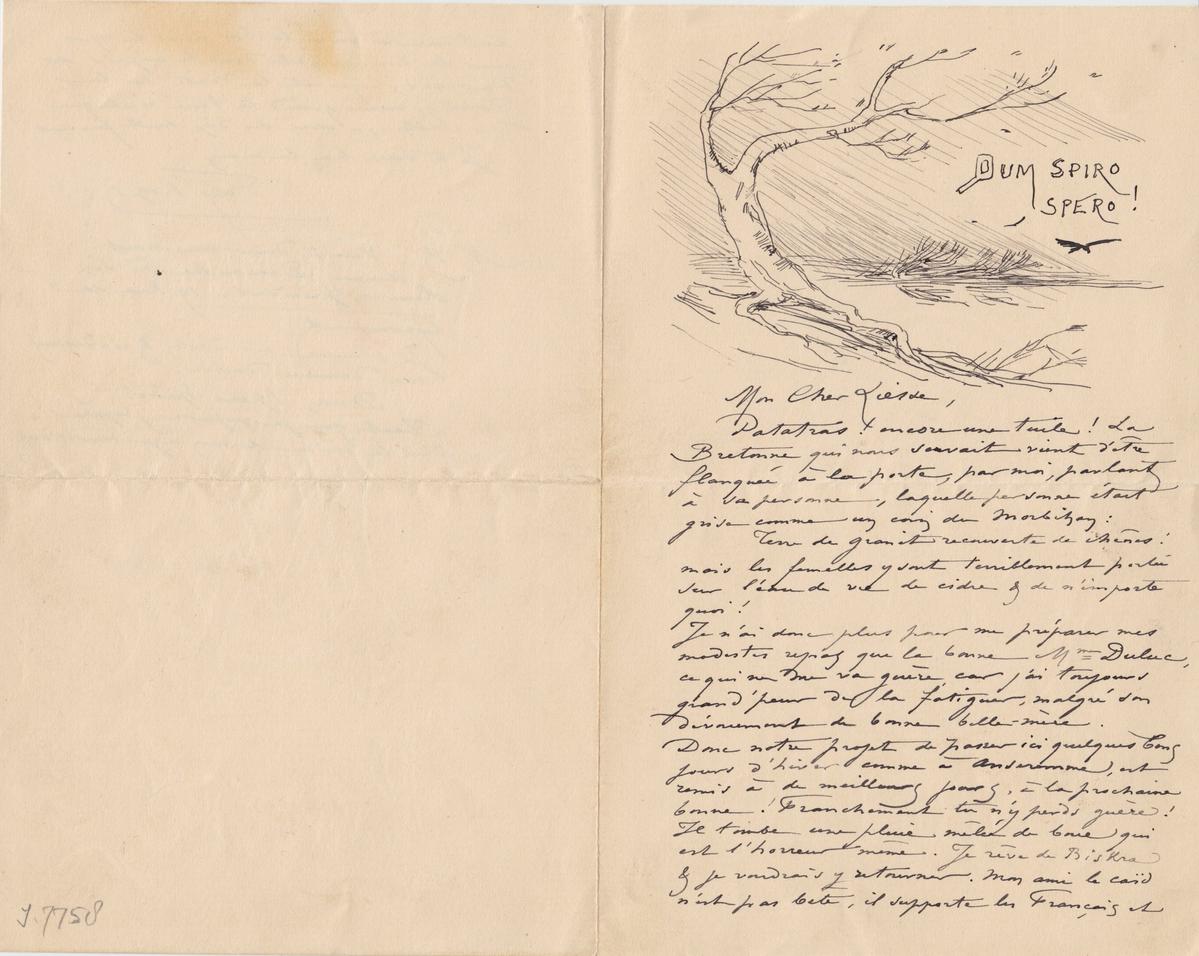 DUM SPIRO
SPERO !
Mon Cher Liesse,
Patatras ! encore une tuile ! La
Bretonne qui nous servait vient d'être
flanquée à la porte, par moi, parlant
à sa personne, laquelle personne était
grise comme un coin du Morbihan :
Terre de granit recouverte de chênes !
mais les femelles y sont terriblement portées
sur l'eau de vie de cidre & de n'importe
quoi !
Je n'ai donc plus pour me préparer mes
modestes repas que la bonne Mme Duluc,
ce qui ne me va guère, car j'ai toujours
grand'peur de la fatiguer, malgré son
dévouement de bonne belle-mère.
Donc notre projet de passer ici quelques bons
jours d'hiver comme à Anseremme, est
remis à de meilleurs jours, à la prochaine
bonne ! Franchement tu n'y perds guère !
Il tombe une pluie mêlée de boue qui
est l'horreur même. Je rêve de Biskra
& je voudrais y retourner. Mon ami le caïd
n'est pas bête, il supporte les Français et
J.7758